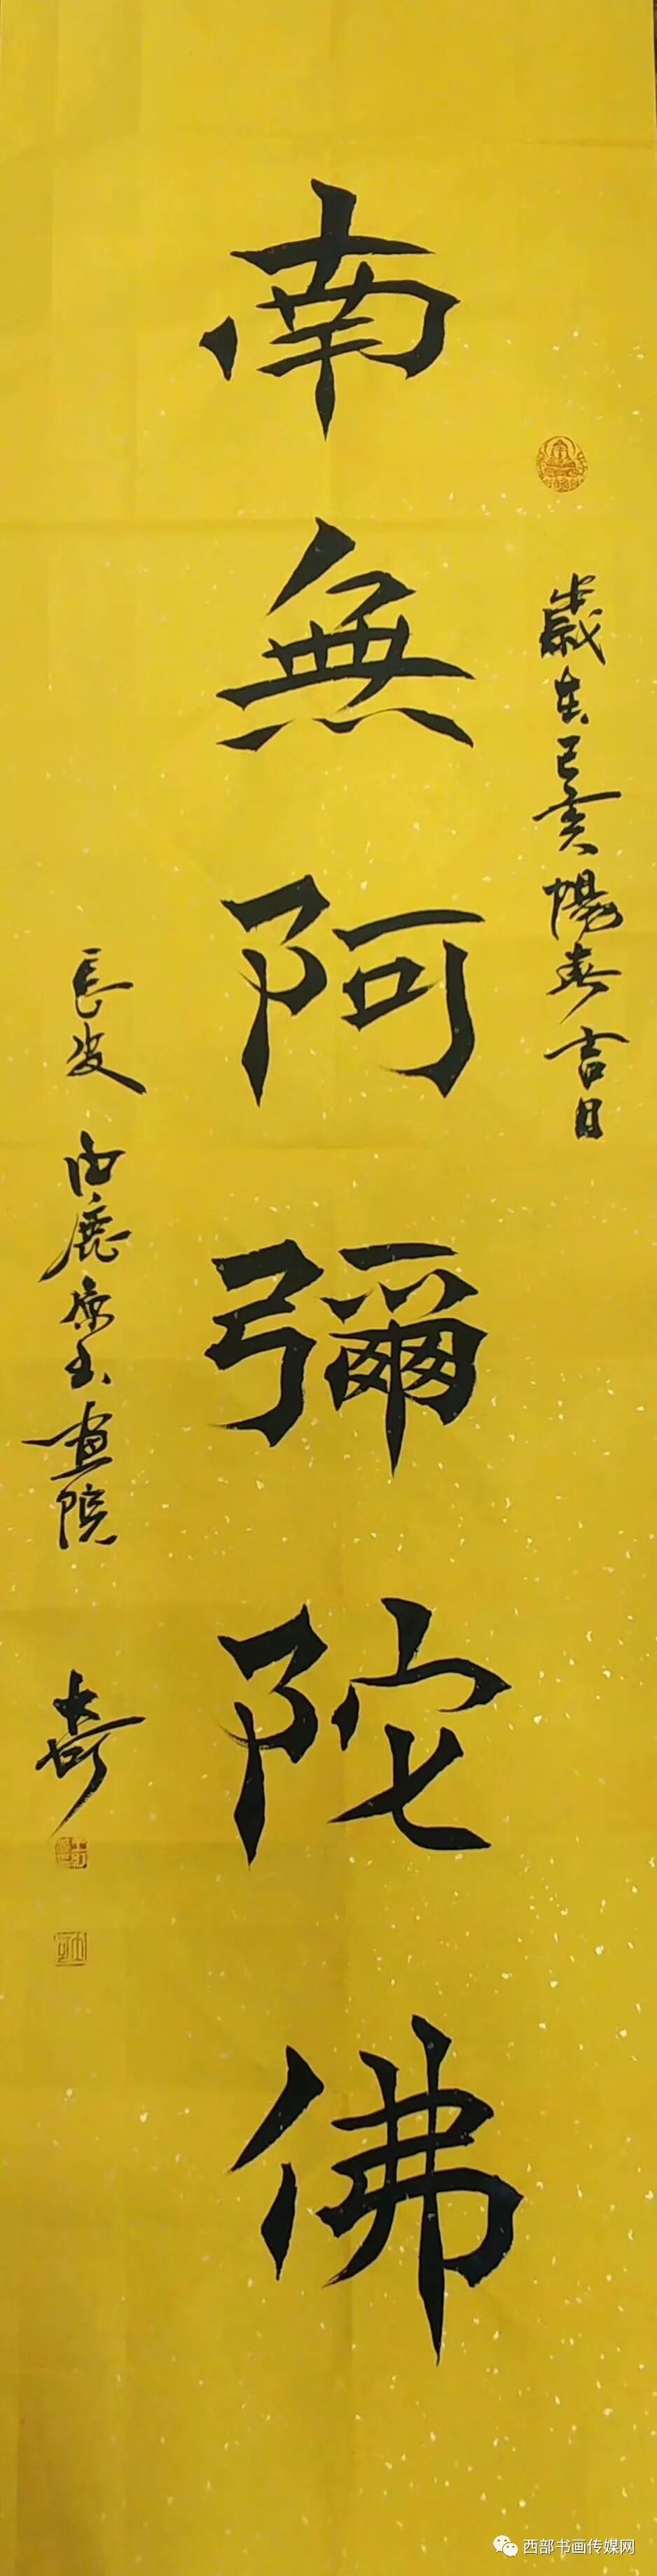 歲在己亥陽春吉日
南無阿彌陀佛
長安白鹿原書畫院
奇
西部书画传媒网